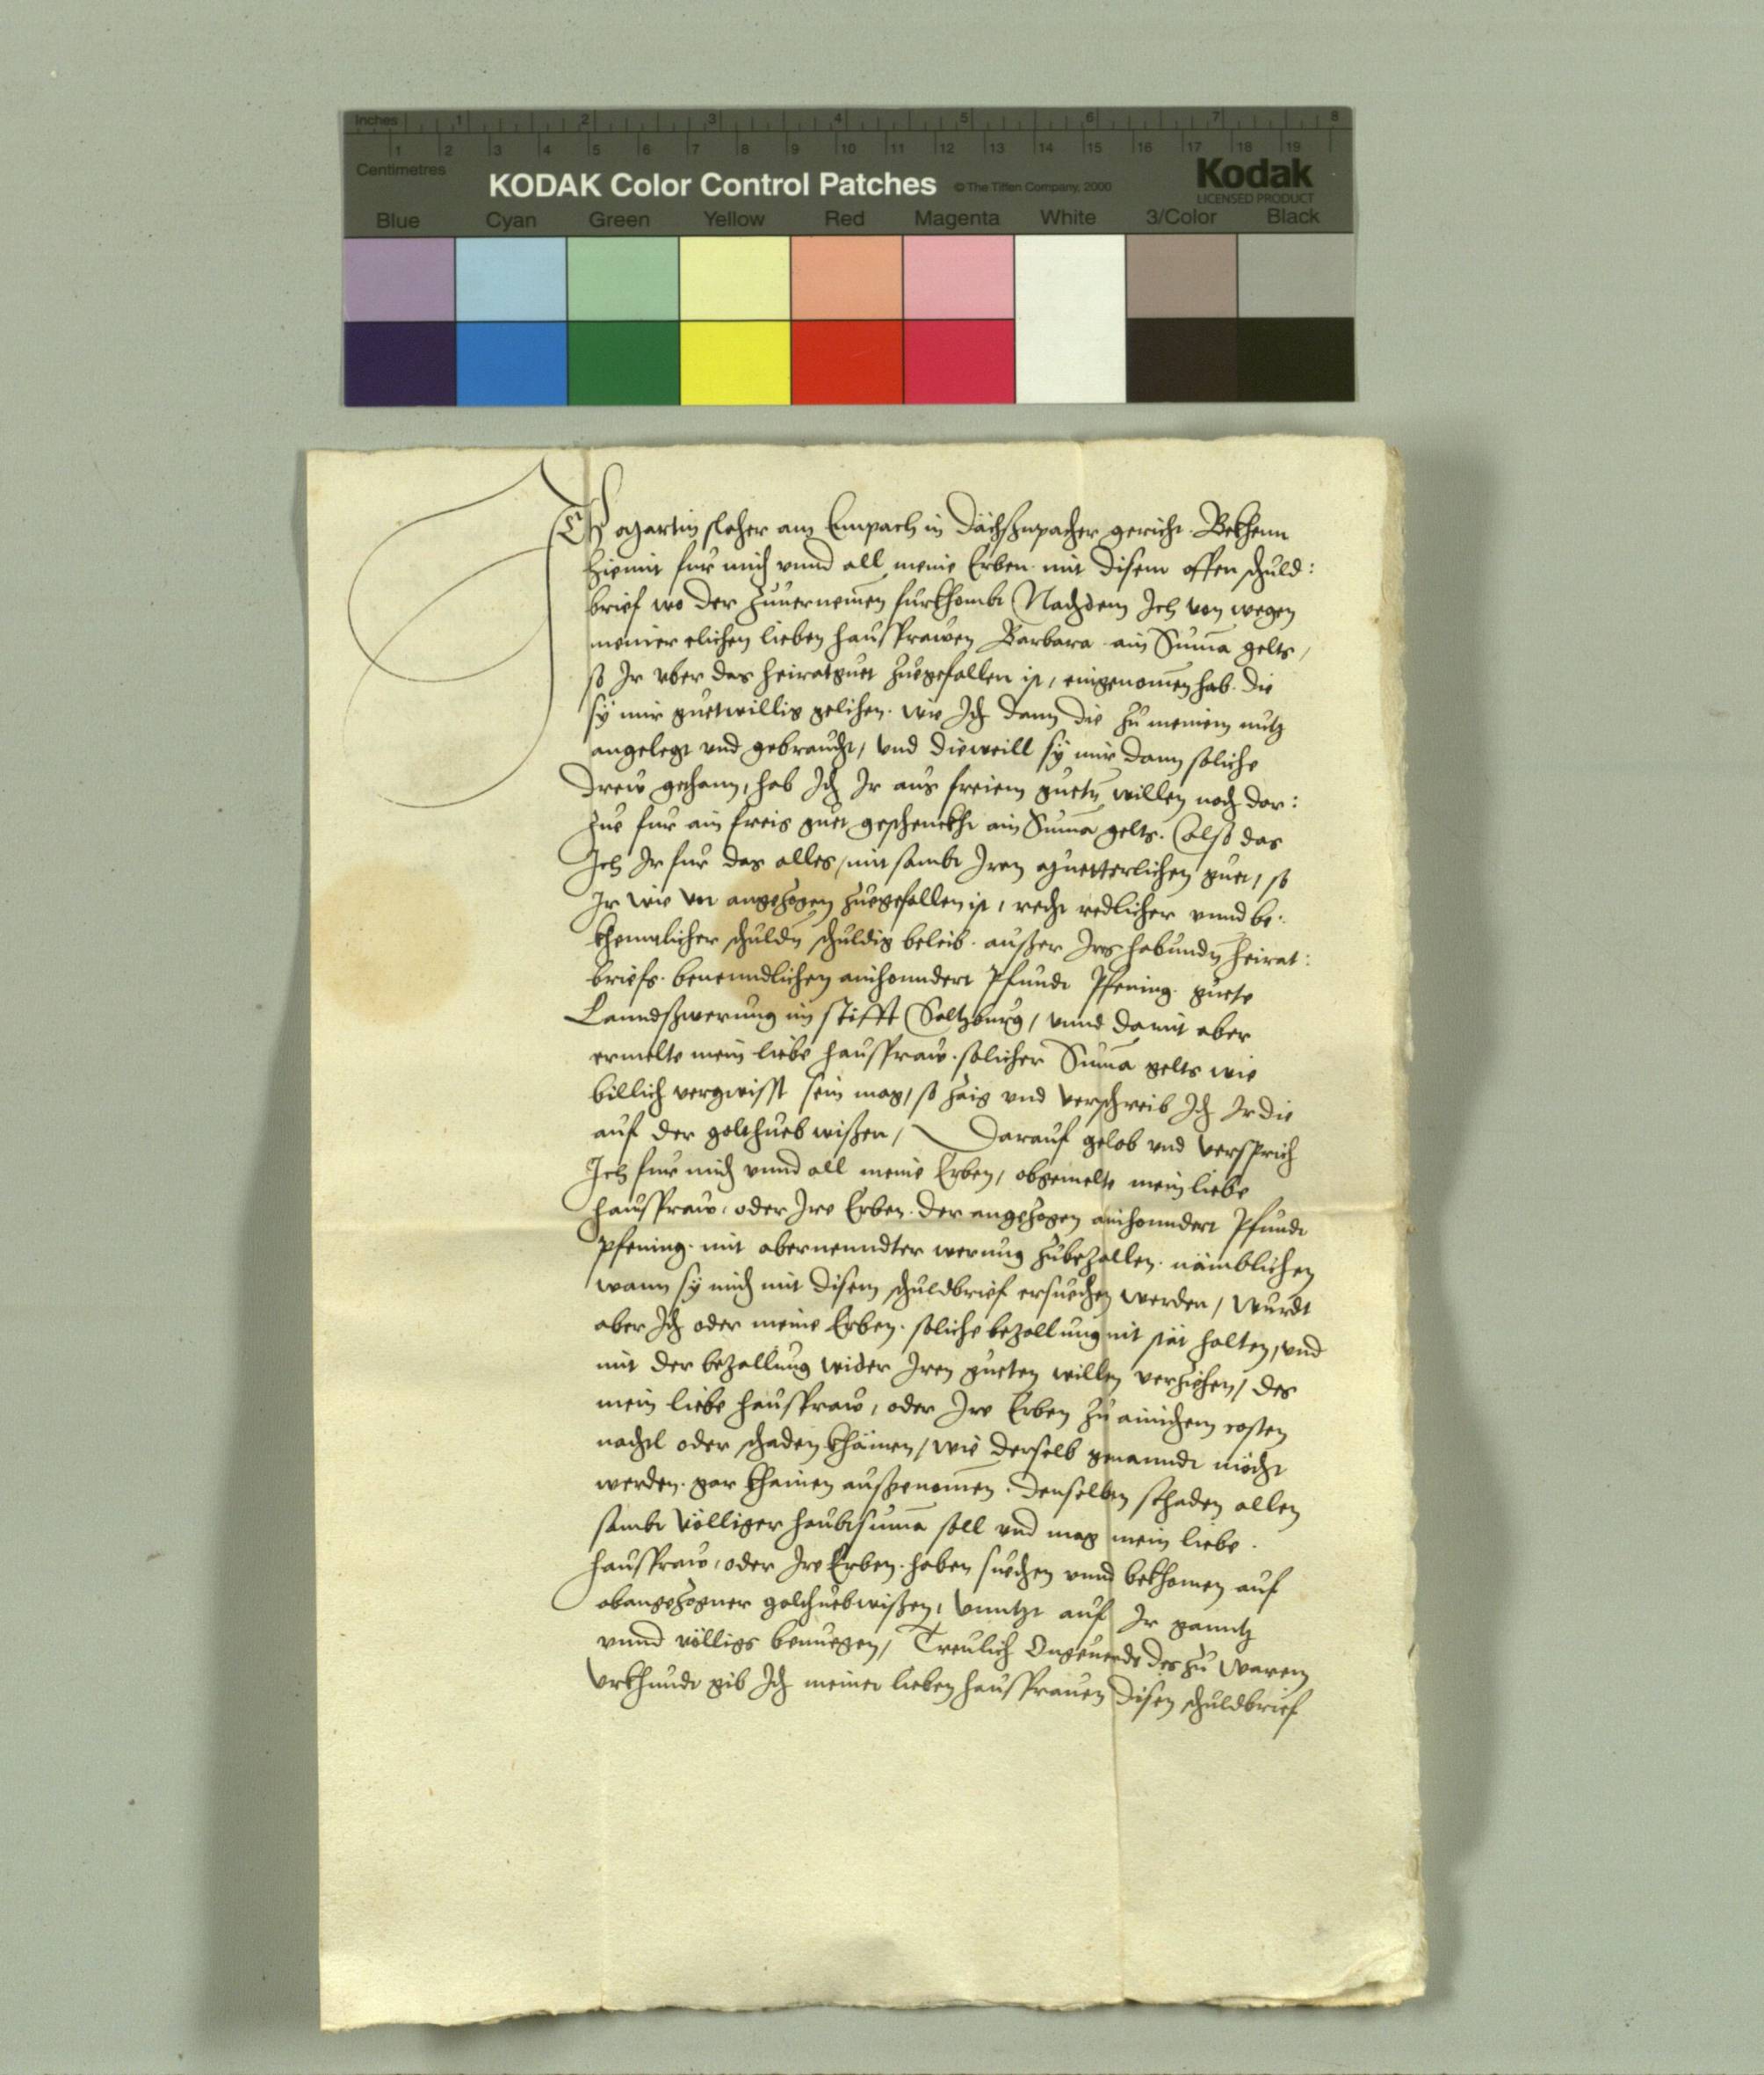 Inches 1 2 3 4 5 6 7 8
1 2 3 4 5 6 7 8 9 10 11 12 13 14 15 16 17 18 19
Centimetres
KODAK Color Control Patches © The Tiffen Company, 2000 Kodak
LICENSED PRODUCT
Blue Cyan Green Yellow Red Magenta White 3/Color Black
Ich Martin am in gericht. Bekhenn
hiemit fur mich vnnd all meine Erben mit disem offen schuld:
brief wo der zuuernemen furkhombt Nachdem Ich von wegen
meiner elichen lieben hausfrawen Barbara ain Suma gelts,
so Ir vber das heiratguet zuegefallen ist, eingenomen hab. die
sy mir guetwillig gelihen. wie Ich dann die zu meinem nutz
angelegt vnd gebraucht, vnd dieweill sy mir dann soliche
drew gethann, hab Ich Ir aus freiem guetn willen noch dar:
zue fur ain freis guet geschenckht ain Suma gelts. also das
Ich Ir fur das alles, mit sambt Irem muetterlichen guet, so
Ir wie vor angezogen zuegefallen ist, recht redlicher vnnd be:
khenntlicher schuldn schuldig beleib. ausser Irs habundn heirat:
briefs. benenndlichen ainhonndert Pfundt Pfening. guete
Lanndßwerung im stifft Saltzburg, vnnd damit aber
ermelte mein liebe hausfraw. solicher Suma gelts wie
billich vergwisst sein mag, so zaig vnd verschreib Ich Ir die
auf der wißen, Darauf gelob vnd versprich
Ich fur mich vnnd all meine Erben, obgemelte mein liebe
hausfraw, oder Ire Erben. der angezogen ainhonndert Pfundt
pfening. mit obernenndter werung zubezallen. nämblichen
wann sy mich mit disem schuldbrief ersuechen werden, Wurdt
aber Ich oder meine Erben. soliche bezallung nit stät halten, vnd
mit der bezallung wider Iren gueten willen verziehen, des
mein liebe hausfraw, oder Ire Erben zu ainichem costen
nachtl oder schaden khämen, wie derselb genanndt möcht
werden. gar khainen außgenomen. denselben schaden allen
sambt völliger haubtsuma soll vnd mag mein liebe.
hausfraw, oder Ire Erben. haben suechen vnnd bekhomen auf
obangezogner wißen, vnntzt auf Ir ganntz
vnnd völligs benuegen, Treulich Ongeuerde des zu Warem
Vrkhundt gib Ich meiner lieben hausfrauen disen schuldbrief